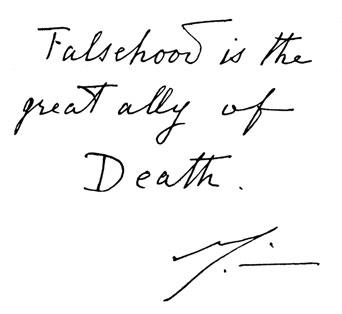 Falsehood is the
great ally of
Death.